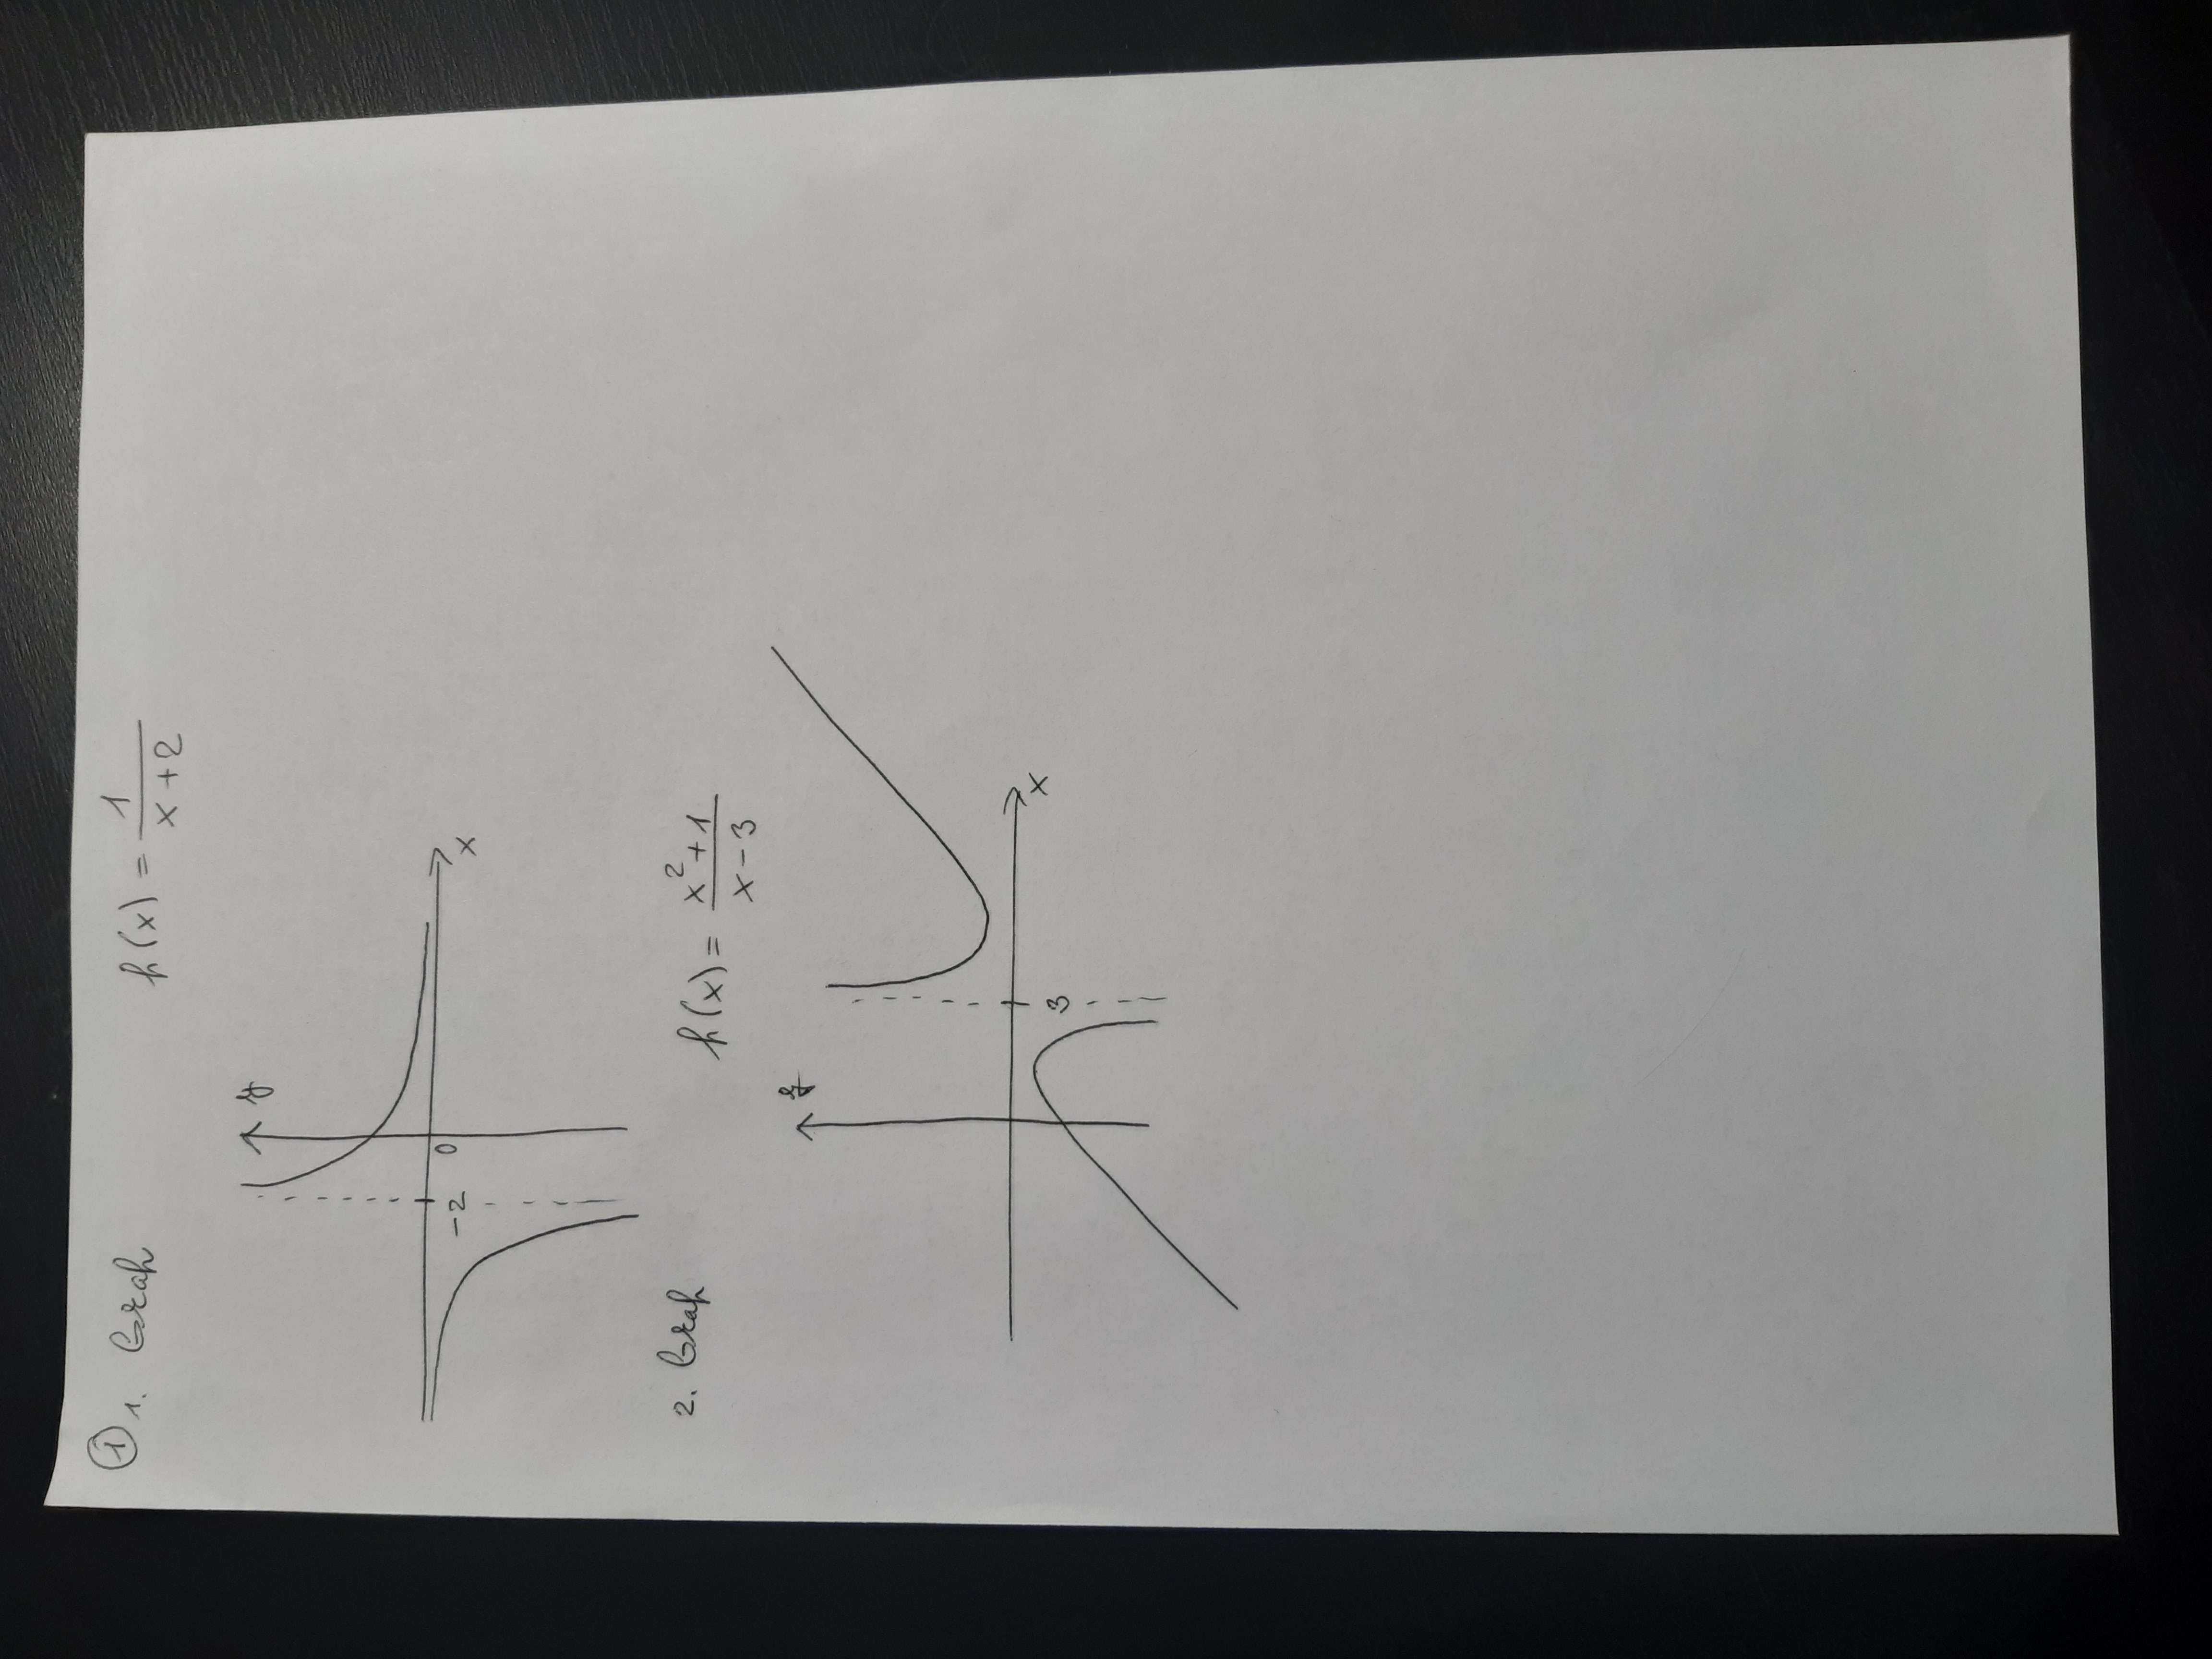 ① 1. Graf f(x) = 1/(x+2)
y
-2 0 x
2. Graf f(x) = (x²+1)/(x-3)
y
x
3